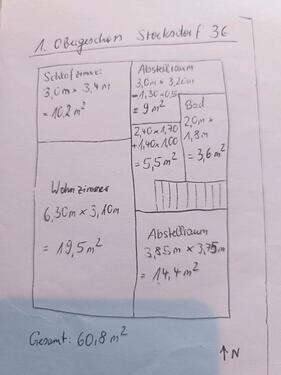 1. Obergeschoss Stocksdorf 36
Schlafzimmer
3,0m x 3,4m
= 10,2 m²
Abstellraum
3,0m x 3,20m
- 1,30 x 0,5
= 9 m²
2,40 x 1,70
+ 1,40 x 1,00
= 5,5 m²
Bad
2,0m x
1,8m
= 3,6 m²
Wohnzimmer
6,30m x 3,10m
= 19,5 m²
Abstellraum
3,85m x 3,75m
= 14,4 m²
Gesamt: 60,8 m²
↑N